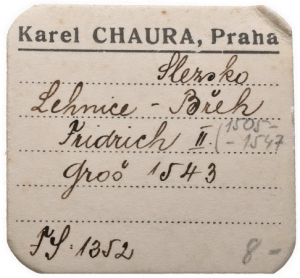 Karel CHAURA, Praha
Slezsko
Lehnice - Břeh
Fridrich II. (1505-
- 1547
Groš 1543
FS: 1352
8 -